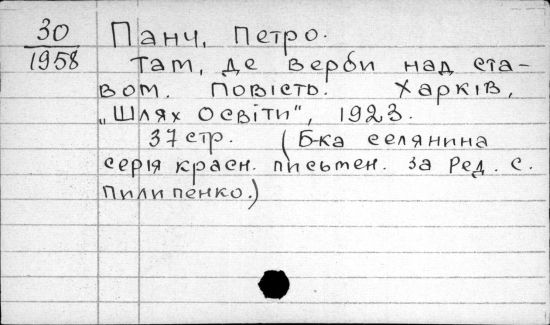 30
1958
Панч, Петро.
Там, де верби над ста-
вом. Повість. Харків,
„Шлях Освіти", 1923.
37 стр. (Б-ка селянина
серія красн. письмен. за Ред. С.
Пилипенко.)